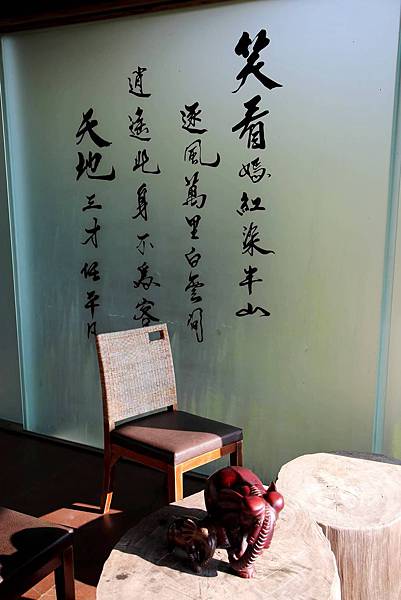 笑看嫣紅染半山
逐風萬里白雲間
逍遙此身不為客
天地三才任平